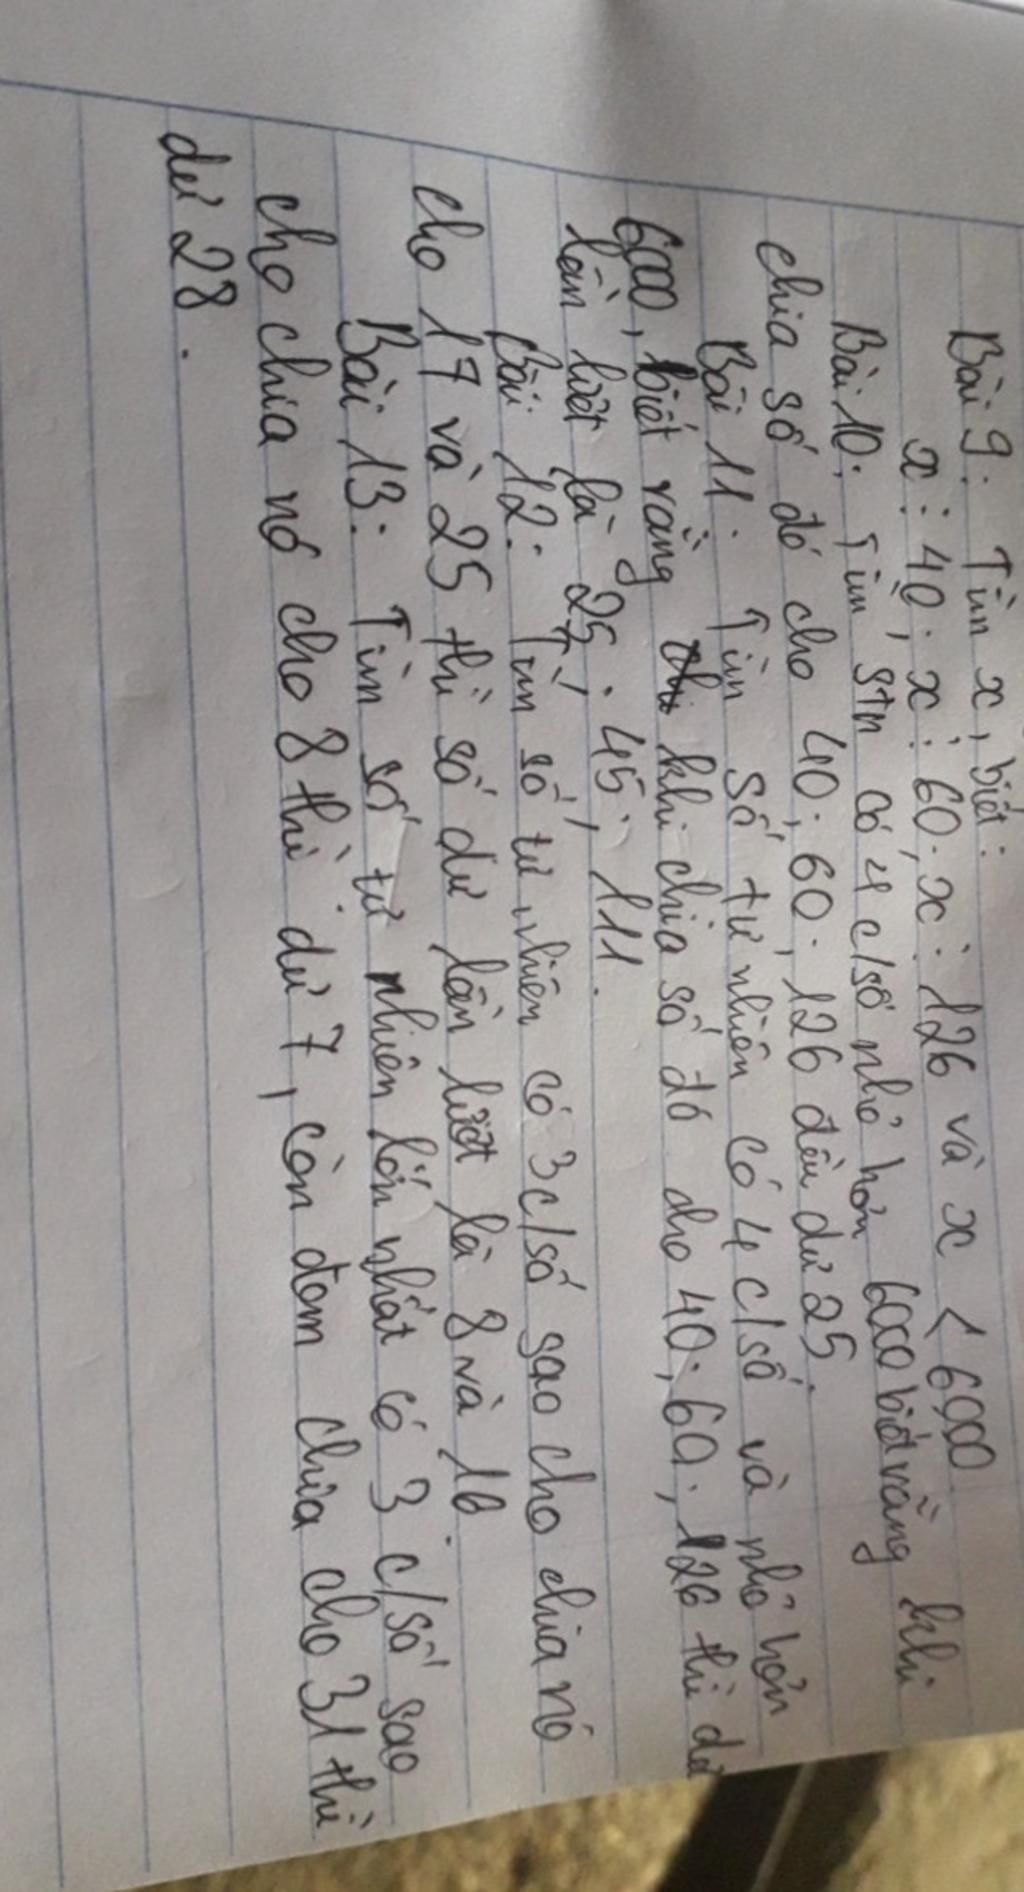 Bài 9: Tìm x, biết:
x ⋮ 40; x ⋮ 60; x ⋮ 126 và x < 6000
Bài 10: Tìm stn có 4 c/số nhỏ hơn 6000 biết rằng khi
chia số đó cho 40; 60; 126 đều dư 25.
Bài 11: Tìm số tự nhiên có 4 c/số và nhỏ hơn
6000, biết rằng khi chia số đó cho 40; 60; 126 thì dư
lần lượt là 25; 45; 111.
Bài 12: Tìm số tự nhiên có 3 c/số sao cho chia nó
cho 17 và 25 thì số dư lần lượt là 8 và 16.
Bài 13: Tìm số tự nhiên lớn nhất có 3 c/số sao
cho chia nó cho 8 thì dư 7, còn đem chia cho 31 thì
dư 28.